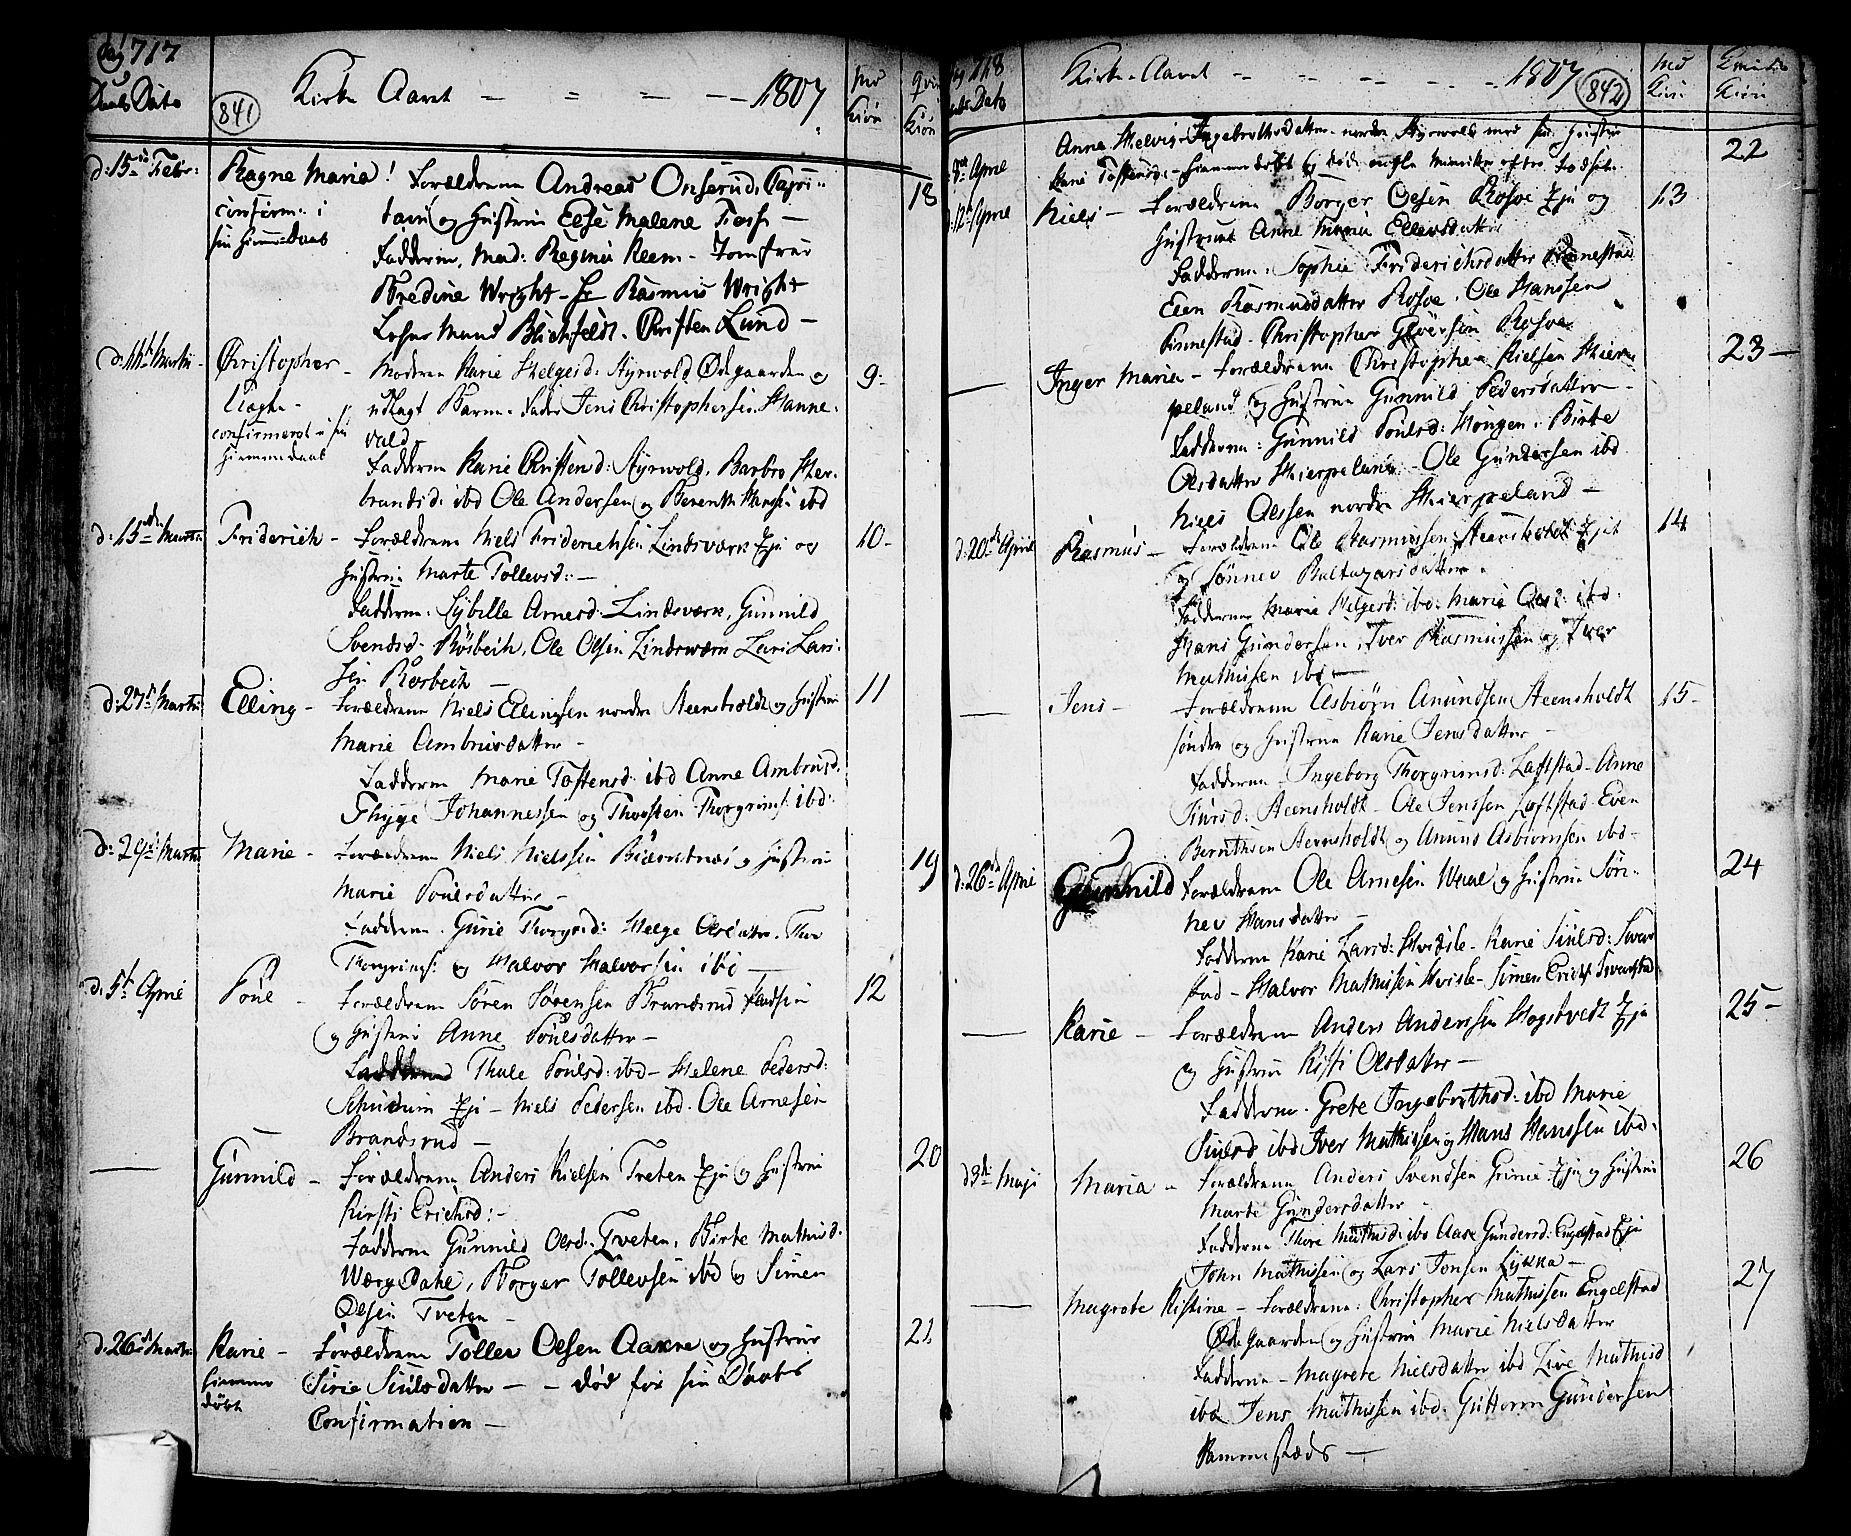 Pag 717
Daabs Dato
841
Kirke Aaret — — — — 1807
Md Kiøn
Qvi Kiøn
d: 15de Febr:
Ragne Maria! Forældrene Andreas Onserud, Capi-
confirm: i
sin Hiemedaab
tain og Hustrue Else Malene Fosh —
Fadderne, Mad: Regine Reem — Jomfrue
Bredine Wright — Hr Rasmus Wright
Blichfeldt. Christen Lund —
18
Martii
Christopher —
confirmeret i sin
Hiemmedaab
Moderen Karie Helgesd: Styrvold Ødegaarden og
udlagt Barne-Fader Jens Christophersen Hanne-
vald,
Fadderne Karie Christensd: Styrvold, Barbro Her-
brandsd: ibd Ole Andersen og Berenth Hansen ibd
9
d: 15de Martii
Friderich — Forældrene Niels Friderichsen Lindsværn Eje og
Hustrue Marte Tollevsd: —
Fadderne: Sybille Arnesd: Lindsværn, Gunnild
Svendsd: Rosbech, Ole Olsen Lindsværn Lars Lar-
sen Rosbech —
10
d: 27de Martii
Elling — Forældrene Niels Ellingsen nordre Steensholdt og Hustrue
Marie Ambrusdatter —
Fadderne Marie Tostensd: ibd Anne Ambrusd.
Thygge Johannessen og Thorsten Thorgrims: ibd:
11
d: 29de Martii
Marie — Forældrene Niels Nielssen Biørntnes og Hustrue
Marie Poulsdatter —
Fadderne. Gurie Thorgrsd: Helge Olsdatter. Thor
Thorgrims: og Halvor Halvorsen ibd —
19
d. 5te April
Poul — Forældrene Søren Sørensen Brandsrud
og Hustrue Anne Poulsdatter —
Fadderne Thale Poulsd: ibd — Helene Pedersd:
Eje — Niels Pedersen ibd. Ole Arnesen
Brandsrud —
12
Gunnild — Forældrene Anders Nielsen Tveten Eje og Hustrue
Kirsti Erichsd: —
Fadderne Gunnild Olsd: Tveten, Birte Mathisd.
Wærgedahl, Borger Tollevsen ibd og Simen
Olsen Tveten —
20
d: 26de Martii
Karie —
hiemme
døbt
Forældrene Tollev Olsen Aakne og Hustrue
Sirie Siulsdatter — — død før sin Daabs
Confirmation —
21
Pag 718
Daabs Dato
Kirke-Aaret — — — — 1807
842
Md Kiøn
Kiøn
April
Anne Helvig Ingebrethsdatter — nordre Styrvold med sin Hustrue
Kari Tostensd: — hiemmedøbt og døde nogle Minuter efter Fødselen
22
12te April
Niels — Forældrene Borger Olsen Rosøe Eje og
Hustrue Anne Maria Ellevsdatter
Fadderne: Sophie Friderichsdatter Rønnestad
Elen Rasmusdatter Rosøe. Ole Hanssen
Christopher Rosøe
13
Inger Maria — Forældrene Christopher Nielsen Skier-
peland og Hustrue Gunnild Pedersdatter —
Fadderne: Gunnild Poulsd: Hougen. Birte
Olsdatter Skierpeland — Ole Gundersen ibd
Niels Olssen nordre Skierpeland —
23
d: 20de April
Rasmus — Forældrene Ole Rasmussen Steensholdt Eje
og Sønnev Baltazarsdatter.
Fadderne Marie Helgesd: ibd: Maria Olsd: ibd:
Hans Gundersen, Iver Rasmussen og Iver
Mathissen ibd —
14
Jens — Forældrene Asbiørn Amundsen Steensholdt
søndre og Hustrue Karie Jensdatter —
Fadderne — Ingeborg Thorgrimsd: Løftstad — Anne
Siursd: Steensholdt — Ole Jenssen Løftstad — Even
Bernthsen Steensholdt og Amund Asbiørnsen ibd —
15
d: 26de April
Gunnild Forældrene Ole Arnesen Waal og Hustrue Søn-
nev Hansdatter —
Fadderne Karie Larsd: Hvidsle — Karie Siulsd: Svar-
stad — Halvor Mathissen Hvisle — Simen Erichs Svarstad
24
Karie — Forældrene Anders Anderssen Hogstvedt Eje
og Hustrue Kisti Olsdatter —
Fadderne. Grete Ingebrethsd: ibd Marie
Siulsd ibd Iver Mathissen og Hans Hanssen ibd.
25
d 3de Maji
Maria — Forældrene Anders Svendsen Grime Eje og Hustrue
Marte Gundersdatter
Fadderne Thore Mathisd: ibd Aase Gundersd: Engelstad Eje
John Mathissen og Lars Jonsen
26
Magrete Kistine — Forældrene: Christopher Mathissen Engelstad
Ødegaarden og Hustrue Marie Nielsdatter
Fadderne — Magrete Nielsdatter ibd Live Mathisd
ibd Jens Mathissen ibd. Guttorm Gundersen
sammestæds —
27